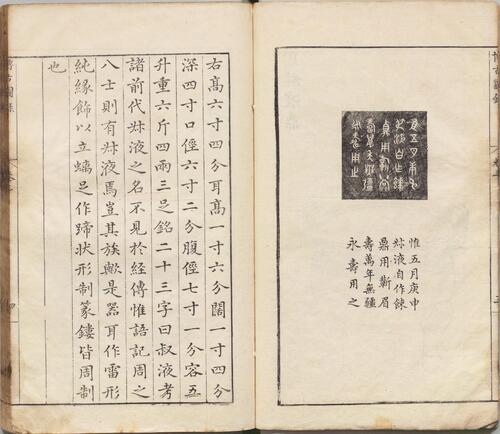 惟五月庚申
叔液自作餗
鼎用鄿眉
壽萬年無疆
永壽用之
右髙六寸四分耳髙一寸六分闊一寸四分
深四寸口徑六寸二分腹徑七寸一分容五
升重六斤四兩三足銘二十三字曰叔液考
諸前代叔液之名不見於經傳惟語記周之
八士則有叔液焉豈其族歟是器耳作雷形
純緣飾以立螭足作蹄狀形制篆鏤皆周制
也